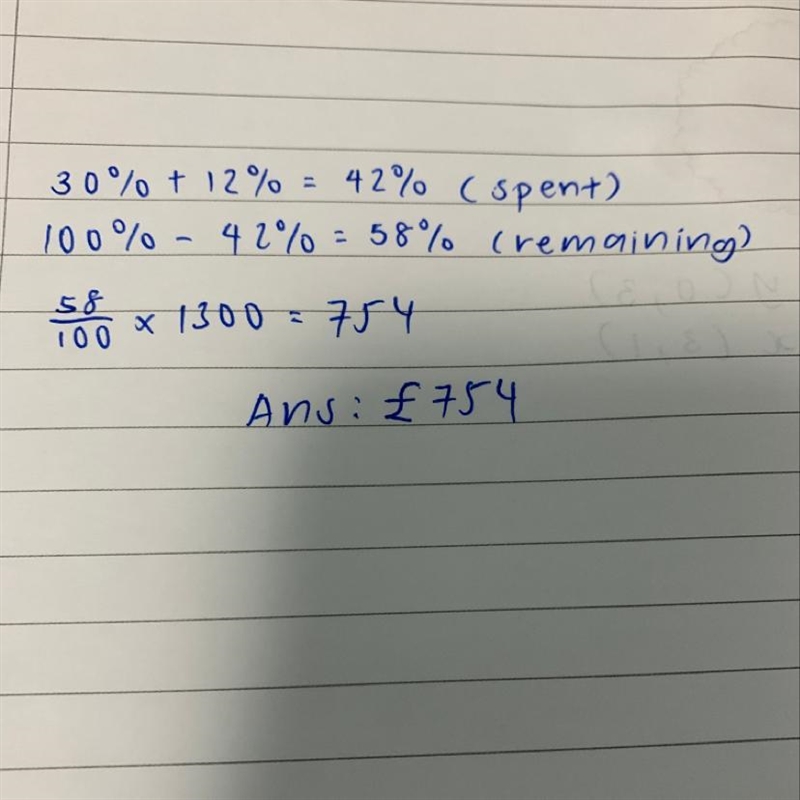 30% + 12% = 42% (spent)
100% - 42% = 58% (remaining)
58/100 x 1300 = 754
Ans: £754